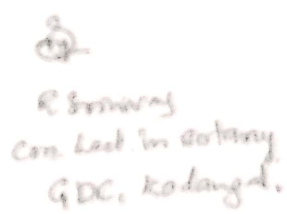 R Srinivas
Con. Lect. in Botany
GDC, Kodangal.